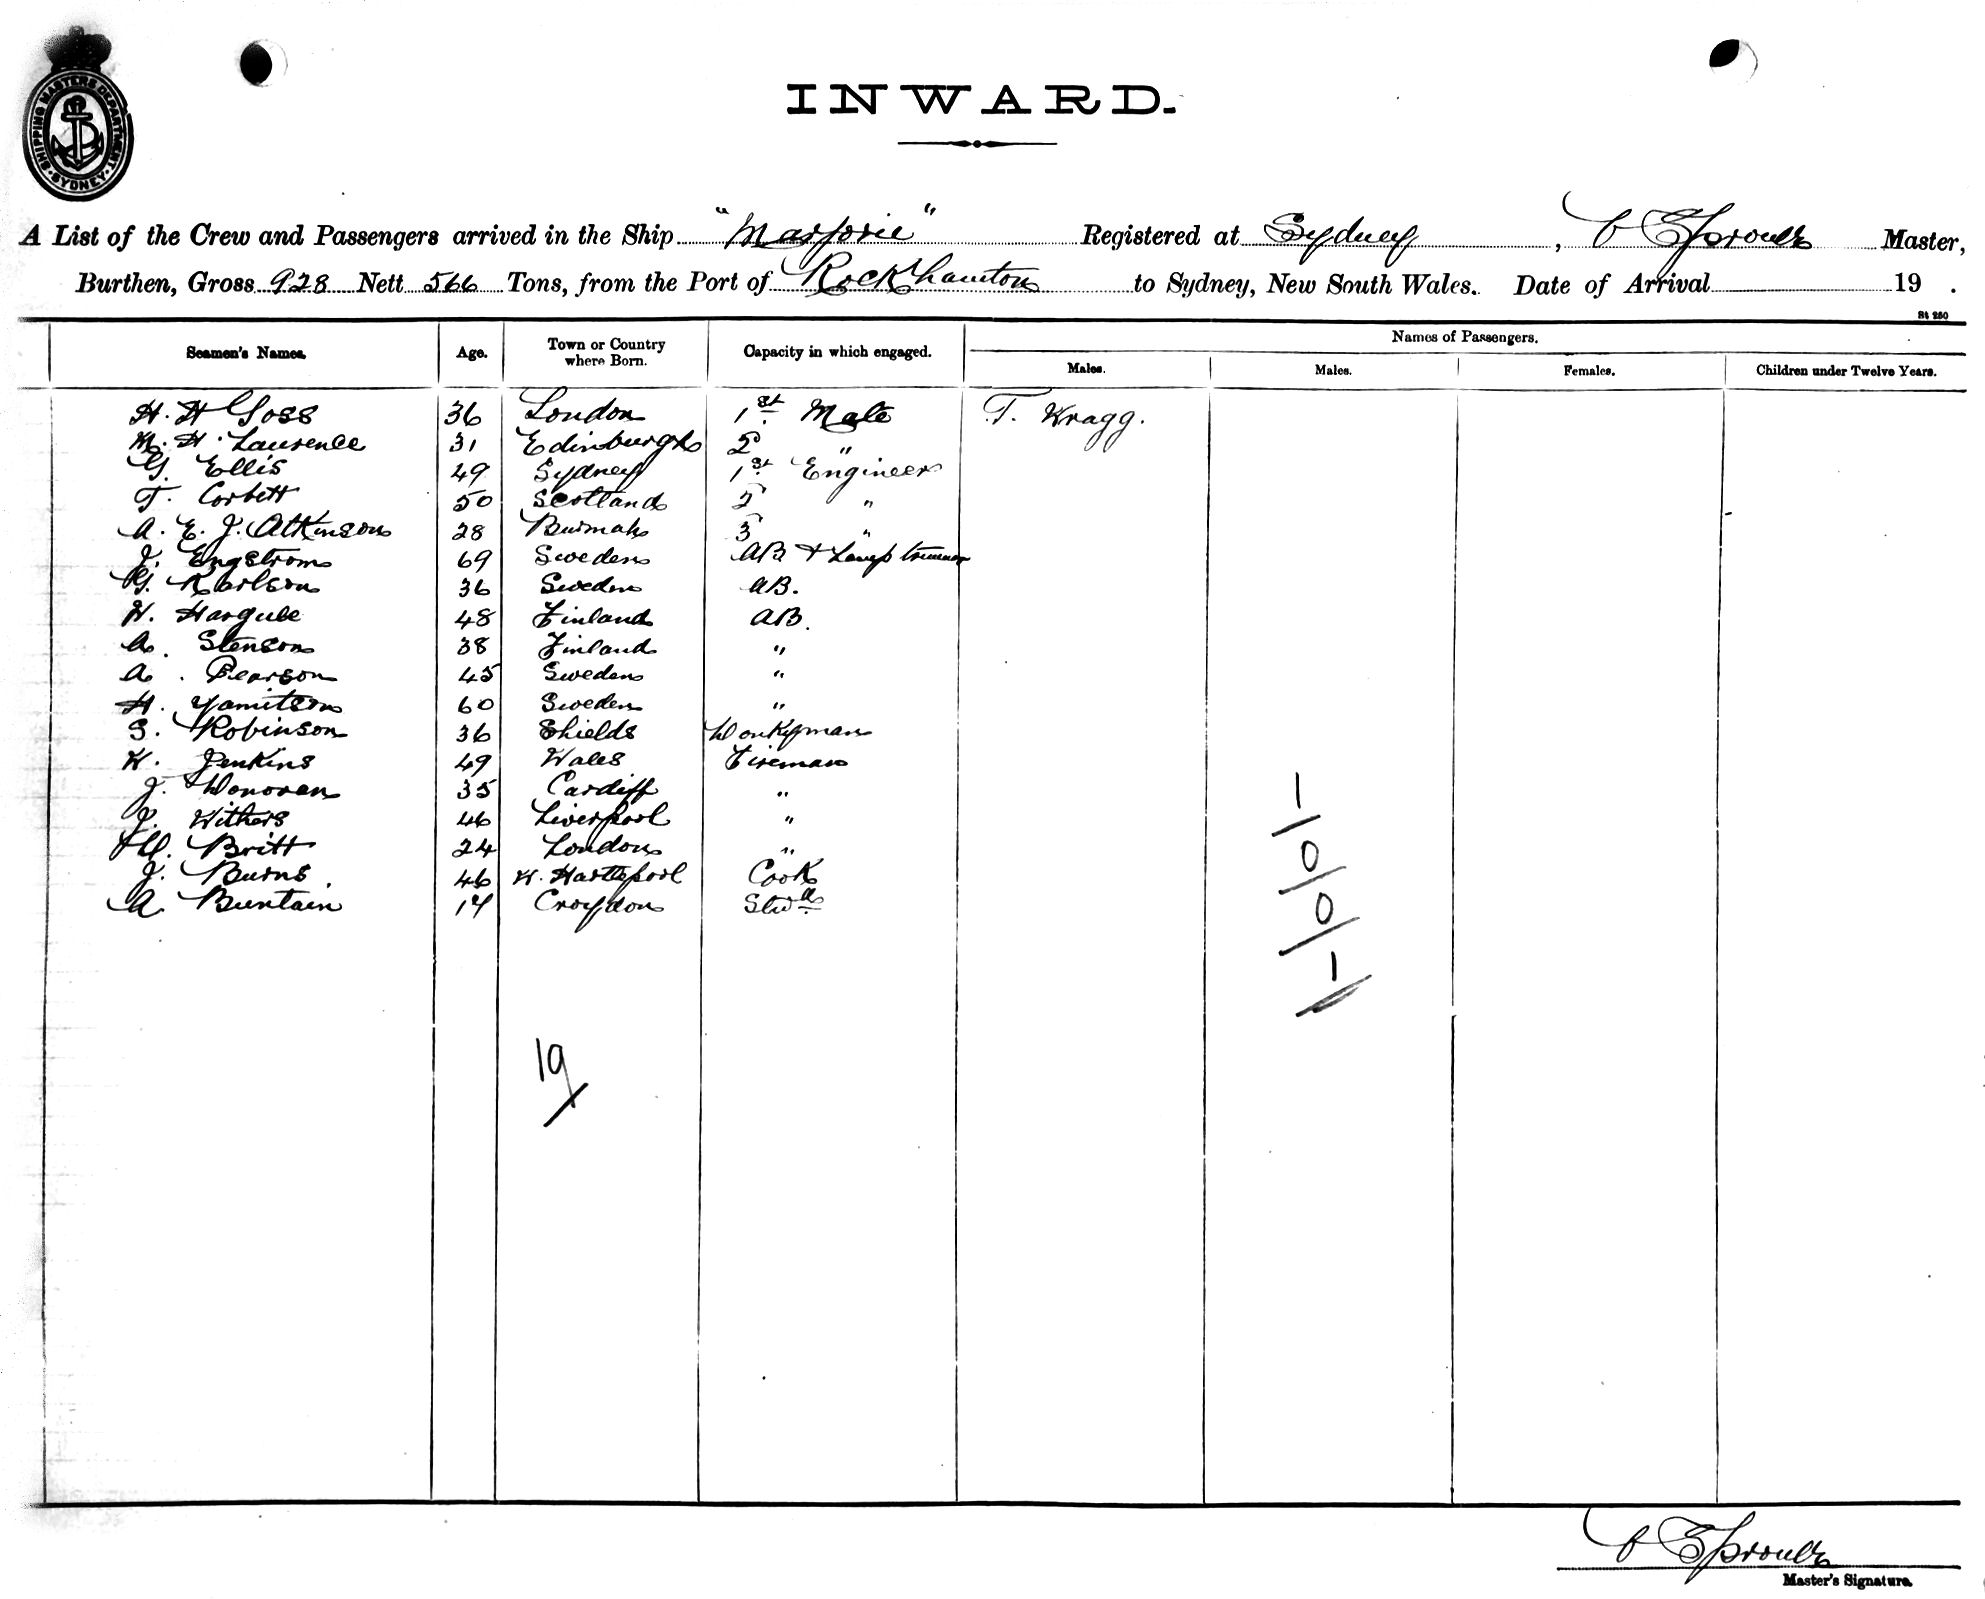 SHIPPING MASTERS DEPARTMENT SYDNEY
INWARD.
A List of the Crew and Passengers arrived in the Ship "Marjorie" Registered at Sydney, Master,
Burthen, Gross 928 Nett 566 Tons, from the Port of Rockhamton to Sydney, New South Wales. Date of Arrival 19 .
St 250
Seamen's Names. Age. Town or Country where Born. Capacity in which engaged. Names of Passengers.
Males. Males. Females. Children under Twelve Years.
H. H Goss 36 London 1st Mate T. Kragg.
M. H. Laurence 31 Edinburgh 2 "
G. Ellis 49 Sydney 1st Engineer
T. Corbett 50 Scotland 2 "
A. E. J. Atkinson 28 Burmah 3 "
J. Engstrom 69 Sweden AB & Lamp trimmer
G. Karlson 36 Sweden AB.
W. 48 Finland AB.
A. Stenson 38 Finland "
A. Pearson 45 Sweden "
H. Yamitson 60 Sweden "
S. Robinson 36 Shields Donkyman
W. Jenkins 49 Wales Fireman
J. Donovan 35 Cardiff "
J. Withers 46 Liverpool "
W. Britt 24 London "
J. Burns. 46 W. Hartlepool Cook
A. Buntain 17 Croydon Stwd
1/0/0/1
19
Master's Signature.